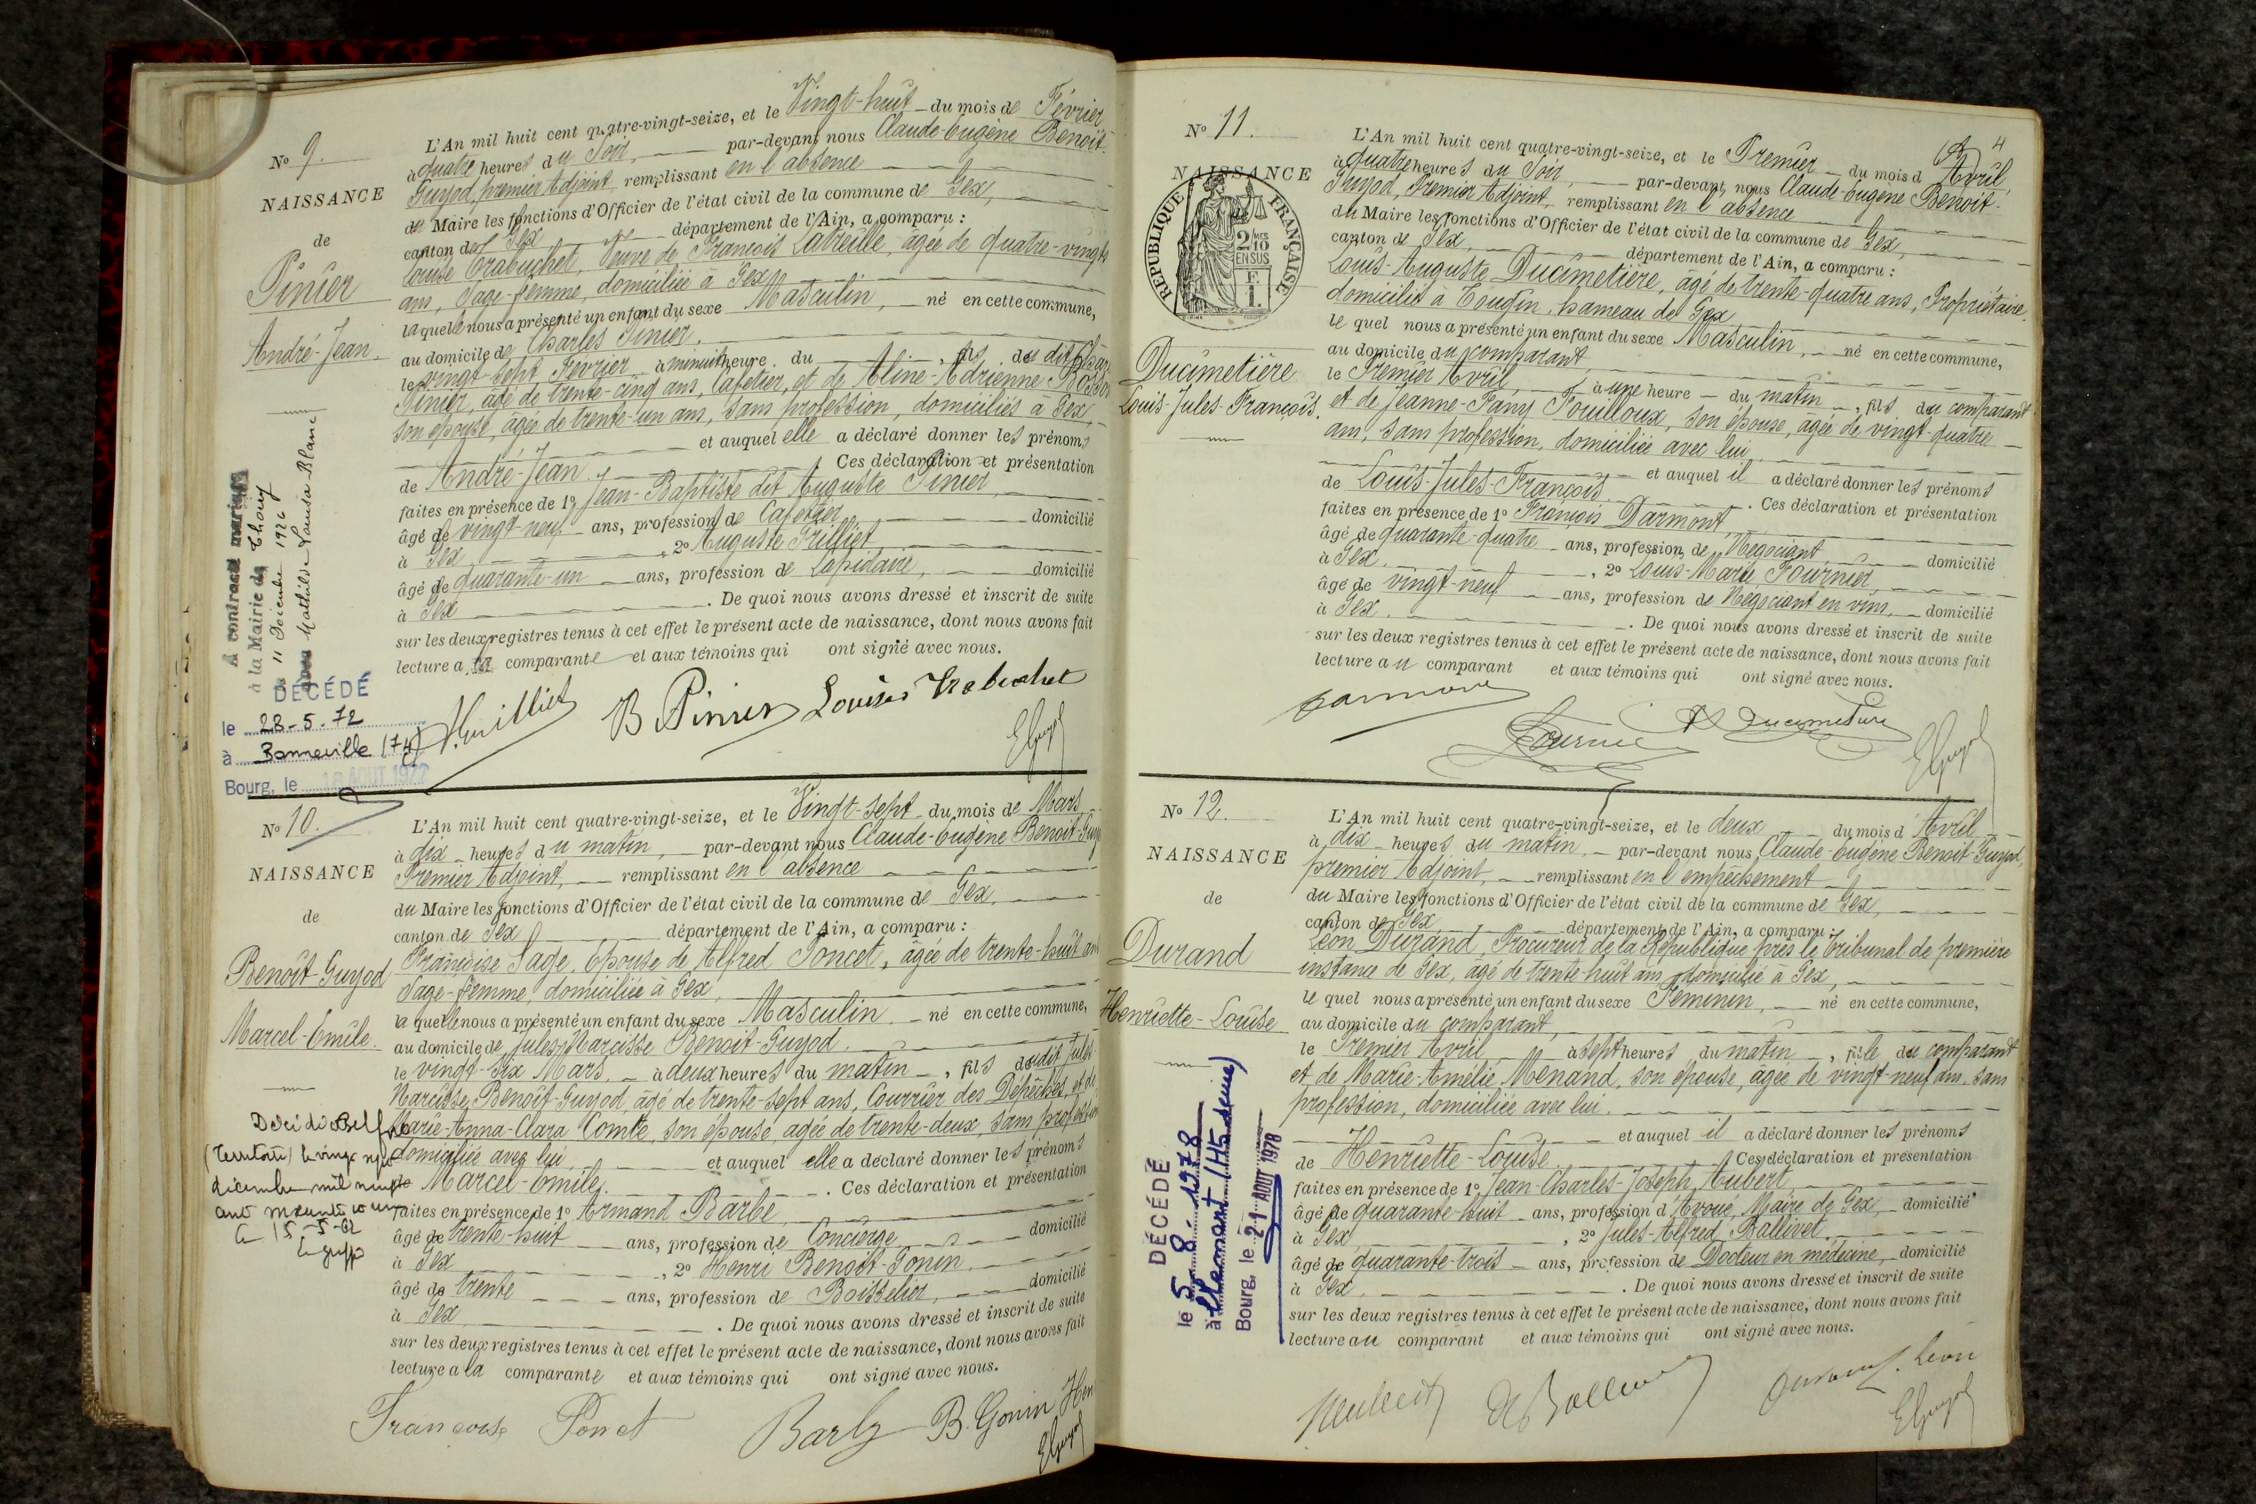 No 9.
NAISSANCE
de
Pinier
André-Jean
A contracté mariage
à la Mairie de Thoiry
le 11 Décembre 1926
avec Mathilde Louisa Blanc
DÉCÉDÉ
le 28-5-72
à Bonneville (74)
Bourg, le 18 AOUT 1972
L'An mil huit cent quatre-vingt-seize, et le Vingt-huit du mois de Février
à quatre heures du Soir, par-devant nous Claude-Eugène Benoît-
Guyod, premier Adjoint, remplissant en l'absence
de Maire les fonctions d'Officier de l'état civil de la commune de Gex,
canton de Gex département de l'Ain, a comparu :
Louise Trabuchet, Veuve de François Latreille, âgée de quatre-vingts
ans, Sage-femme, domiciliée à Gex,
laquelle nous a présenté un enfant du sexe Masculin, né en cette commune,
au domicile de Charles Pinier,
le vingt-sept Février à minuit heure du , fils du dit Charles
Pinier, âgé de trente-cinq ans, Cafetier, et de Aline-Adrienne Bosson
son épouse, âgée de trente-un ans, sans profession, domiciliés à Gex,
et auquel elle a déclaré donner les prénoms
de André-Jean. Ces déclaration et présentation
faites en présence de 1º Jean-Baptiste dit Auguste Pinier,
âgé de vingt-neuf ans, profession de Cafetier domicilié
à Gex, 2º Auguste Grilliet
âgé de quarante-un ans, profession de Lapidaire, domicilié
à Gex . De quoi nous avons dressé et inscrit de suite
sur les deux registres tenus à cet effet le présent acte de naissance, dont nous avons fait
lecture a la comparante et aux témoins qui ont signé avec nous.
B Pinier Louise Trabuchet
EGuyod
No 10.
NAISSANCE
de
Benoît-Guyod
Marcel-Emile.
Décédé à Belfort
(Territoire) le vingt neuf
décembre mil neuf
cent soixante et un
Le 15-5-62
Le greff
L'An mil huit cent quatre-vingt-seize, et le Vingt-sept du mois de Mars
à dix heures du matin, par-devant nous Claude-Eugène Benoît-Guyod
Premier Adjoint, remplissant en l'absence
du Maire les fonctions d'Officier de l'état civil de la commune de Gex,
canton de Gex département de l'Ain, a comparu :
Françoise Sage, Epouse de Alfred Poncet, âgée de trente-huit ans
Sage-femme, domiciliée à Gex,
laquelle nous a présenté un enfant du sexe Masculin né en cette commune,
au domicile de Jules-Narcisse Benoît-Guyod.
le vingt-six Mars, à deux heures du matin, fils du dit Jules-
Narcisse Benoît-Guyod, âgé de trente-sept ans, Courrier des Dépêches, et de
Marie-Anna-Clara Comte, son épouse, âgée de trente-deux, sans profession
domiciliée avec lui, et auquel elle a déclaré donner les prénoms
de Marcel-Emile. Ces déclaration et présentation
faites en présence de 1º Armand Barbe,
âgé de trente-huit ans, profession de Concierge domicilié
à Gex , 2º Henri Benoît-Gonin
âgé de trente ans, profession de Boisselier, domicilié
à Gex . De quoi nous avons dressé et inscrit de suite
sur les deux registres tenus à cet effet le présent acte de naissance, dont nous avons fait
lecture a la comparante et aux témoins qui ont signé avec nous.
Françoise Poncet Barbe B. Gonin Hen
EGuyod
4
No 11.
NAISSANCE
RÉPUBLIQUE FRANÇAISE
2/10 EN SUS
Ducimetière
Louis-Jules-François.
L'An mil huit cent quatre-vingt-seize, et le Premier du mois d Avril,
à quatre heures du Soir, par-devant nous Claude-Eugène Benoît-
Guyod, Premier Adjoint, remplissant en l'absence
du Maire les fonctions d'Officier de l'état civil de la commune de Gex,
canton de Gex, département de l'Ain, a comparu :
Louis-Auguste Ducimetière, âgé de trente-quatre ans, Propriétaire,
domicilié à Tougin, hameau de Gex
le quel nous a présenté un enfant du sexe Masculin, né en cette commune,
au domicile du comparant,
le Premier Avril, à une heure du matin, fils du comparant
et de Jeanne-Fany Fouilloux, son épouse, âgée de vingt-quatre
ans, sans profession, domiciliée avec lui
et auquel il a déclaré donner les prénoms
de Louis-Jules-François. Ces déclaration et présentation
faites en présence de 1º François Darmont,
âgé de quarante-quatre ans, profession de Négociant domicilié
à Gex, 2º Louis-Marie Fournier,
âgé de vingt-neuf ans, profession de Négociant en vins, domicilié
à Gex. De quoi nous avons dressé et inscrit de suite
sur les deux registres tenus à cet effet le présent acte de naissance, dont nous avons fait
lecture au comparant et aux témoins qui ont signé avec nous.
Darmont
Fournier Ducimetière EGuyod
No 12.
NAISSANCE
de
Durand
Henriette-Louise
DÉCÉDÉ
le 5-8-1978
à Clamart (Hts de Seine)
Bourg, le 21 AOUT 1978
L'An mil huit cent quatre-vingt-seize, et le deux du mois d Avril
à dix heures du matin, par-devant nous Claude-Eugène Benoît-Guyod,
premier Adjoint, remplissant en l'empêchement
du Maire les fonctions d'Officier de l'état civil de la commune de Gex,
canton de Gex département de l'Ain, a comparu :
Léon Durand, Procureur de la République près le Tribunal de première
instance de Gex, âgé de trente-huit ans, domicilié à Gex,
le quel nous a présenté un enfant du sexe Féminin, né en cette commune,
au domicile du comparant,
le Premier Avril à sept heures du matin, fille du comparant
et de Marie-Amélie Menand, son épouse, âgée de vingt-neuf ans, sans
profession, domiciliée avec lui.
et auquel il a déclaré donner les prénoms
de Henriette-Louise. Ces déclaration et présentation
faites en présence de 1º Jean-Charles-Joseph Aubert,
âgé de quarante-huit ans, profession d'Avoué, Maire de Gex, domicilié
à Gex, 2º Jules-Alfred Ballivet,
âgé de quarante-trois ans, profession de Docteur en médecine, domicilié
à Gex. De quoi nous avons dressé et inscrit de suite
sur les deux registres tenus à cet effet le présent acte de naissance, dont nous avons fait
lecture au comparant et aux témoins qui ont signé avec nous.
Durand Léon
EGuyod